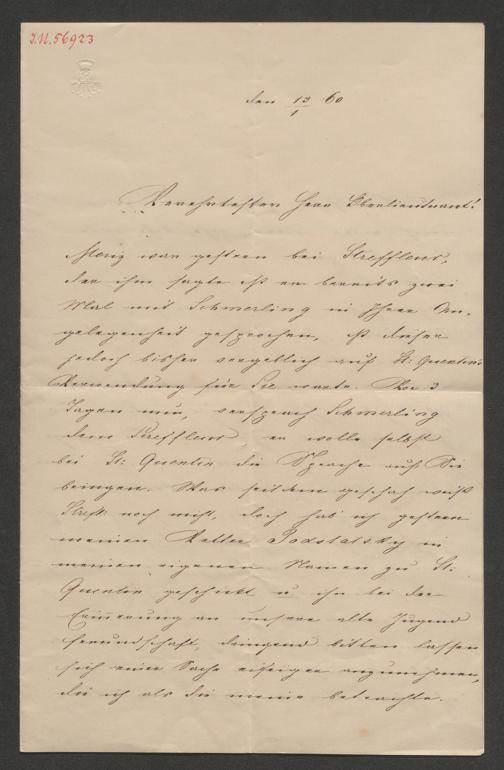 I.N. 56923
den 13/1 60
Verehrtester Herr Oberlieutenant!
Moriz war gestern bei Streffleur,
der ihm sagte daß er bereits zwei
Mal mit Schmerling in Ihrer An,
gelegenheit gesprochen, daß dieser
jedoch bisher vergeblich auf St: Quentin's
Verwendung für Sie warte. Vor 3
Tagen nun, versprach Schmerling
dem Streffleur, er wolle selbst
bei St: Quentin die Sprache auf Sie
bringen. Was seitdem geschah weiß
Streffl noch nicht, doch hab ich gestern
meinen Vetter Podstatsky in
meinem eigenen Namen zu St:
Quentin geschickt u ihn bei der
Erinnerung an unsere alte Jugend
freundschaft, dringend bitten lassen
sich einer Sache eifrigst anzunehmen,
die ich als die meine betrachte.